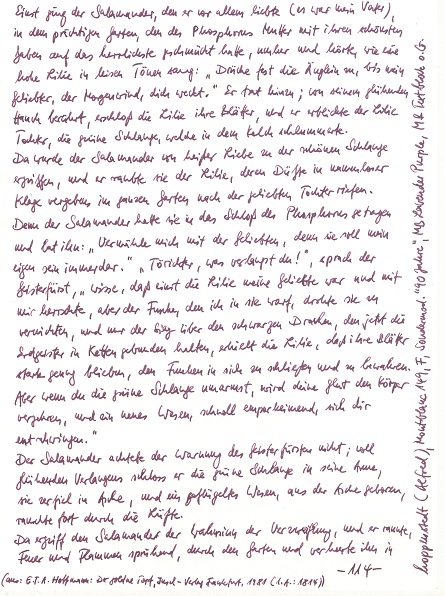 Einst ging der Salamander, den er vor allem liebte (es war mein Vater),
in dem prächtigen Garten, den des Phosphorus Mutter mit ihren schönsten
Gaben auf das herrlichste geschmückt hatte, umher und hörte, wie eine
hohe Lilie in leisen Tönen sang: „Drücke fest die Äuglein zu, bis mein
Geliebter, der Morgenwind, dich weckt." Er trat hinzu; von seinem glühenden
Hauch berührt, erschloß die Lilie ihre Blätter, und er erblickte der Lilie
Tochter, die grüne Schlange, welche in dem Kelch schlummerte.
Da wurde der Salamander von heißer Liebe zu der schönen Schlange
ergriffen, und er raubte sie der Lilie, deren Düfte in namenloser
Klage vergebens im ganzen Garten nach der geliebten Tochter riefen.
Denn der Salamander hatte sie in das Schloß des Phosphorus getragen
und bat ihn: „Vermähle mich mit der Geliebten, denn sie soll mein
eigen sein immerdar." „Törichter, was verlangst du!", sprach der
Geisterfürst, „wisse, daß einst die Lilie meine Geliebte war und mit
mir herrschte, aber der Funke, den ich in sie warf, drohte sie zu
vernichten, und nur der Sieg über den schwarzen Drachen, den jetzt die
Erdgeister in Ketten gebunden halten, erhielt die Lilie, daß ihre Blätter
stark genug blieben, den Funken in sich zu schließen und zu bewahren.
Aber wenn du die grüne Schlange umarmst, wird deine Glut den Körper
verzehren, und ein neues Wesen, schnell emporkeimend, sich dir
entschwingen."
Der Salamander achtete der Warnung des Geisterfürsten nicht; voll
glühenden Verlangens schloss er die grüne Schlange in seine Arme,
sie zerfiel in Asche, und ein geflügeltes Wesen, aus der Asche geboren,
rauschte fort durch die Lüfte.
Da ergriff den Salamander der Wahnsinn der Verzweiflung, und er rannte,
Feuer und Flammen sprühend, durch den Garten und verheerte ihn in
—114—
(aus: E.T.A. Hoffmann: Der goldne Topf, Insel-Verlag Frankfurt, 1981 (1.A.: 1814))
hoppenstedt (Alfred), Montblanc 149, F, Sondermod. "90 Jahre", MB Lavender Purple,